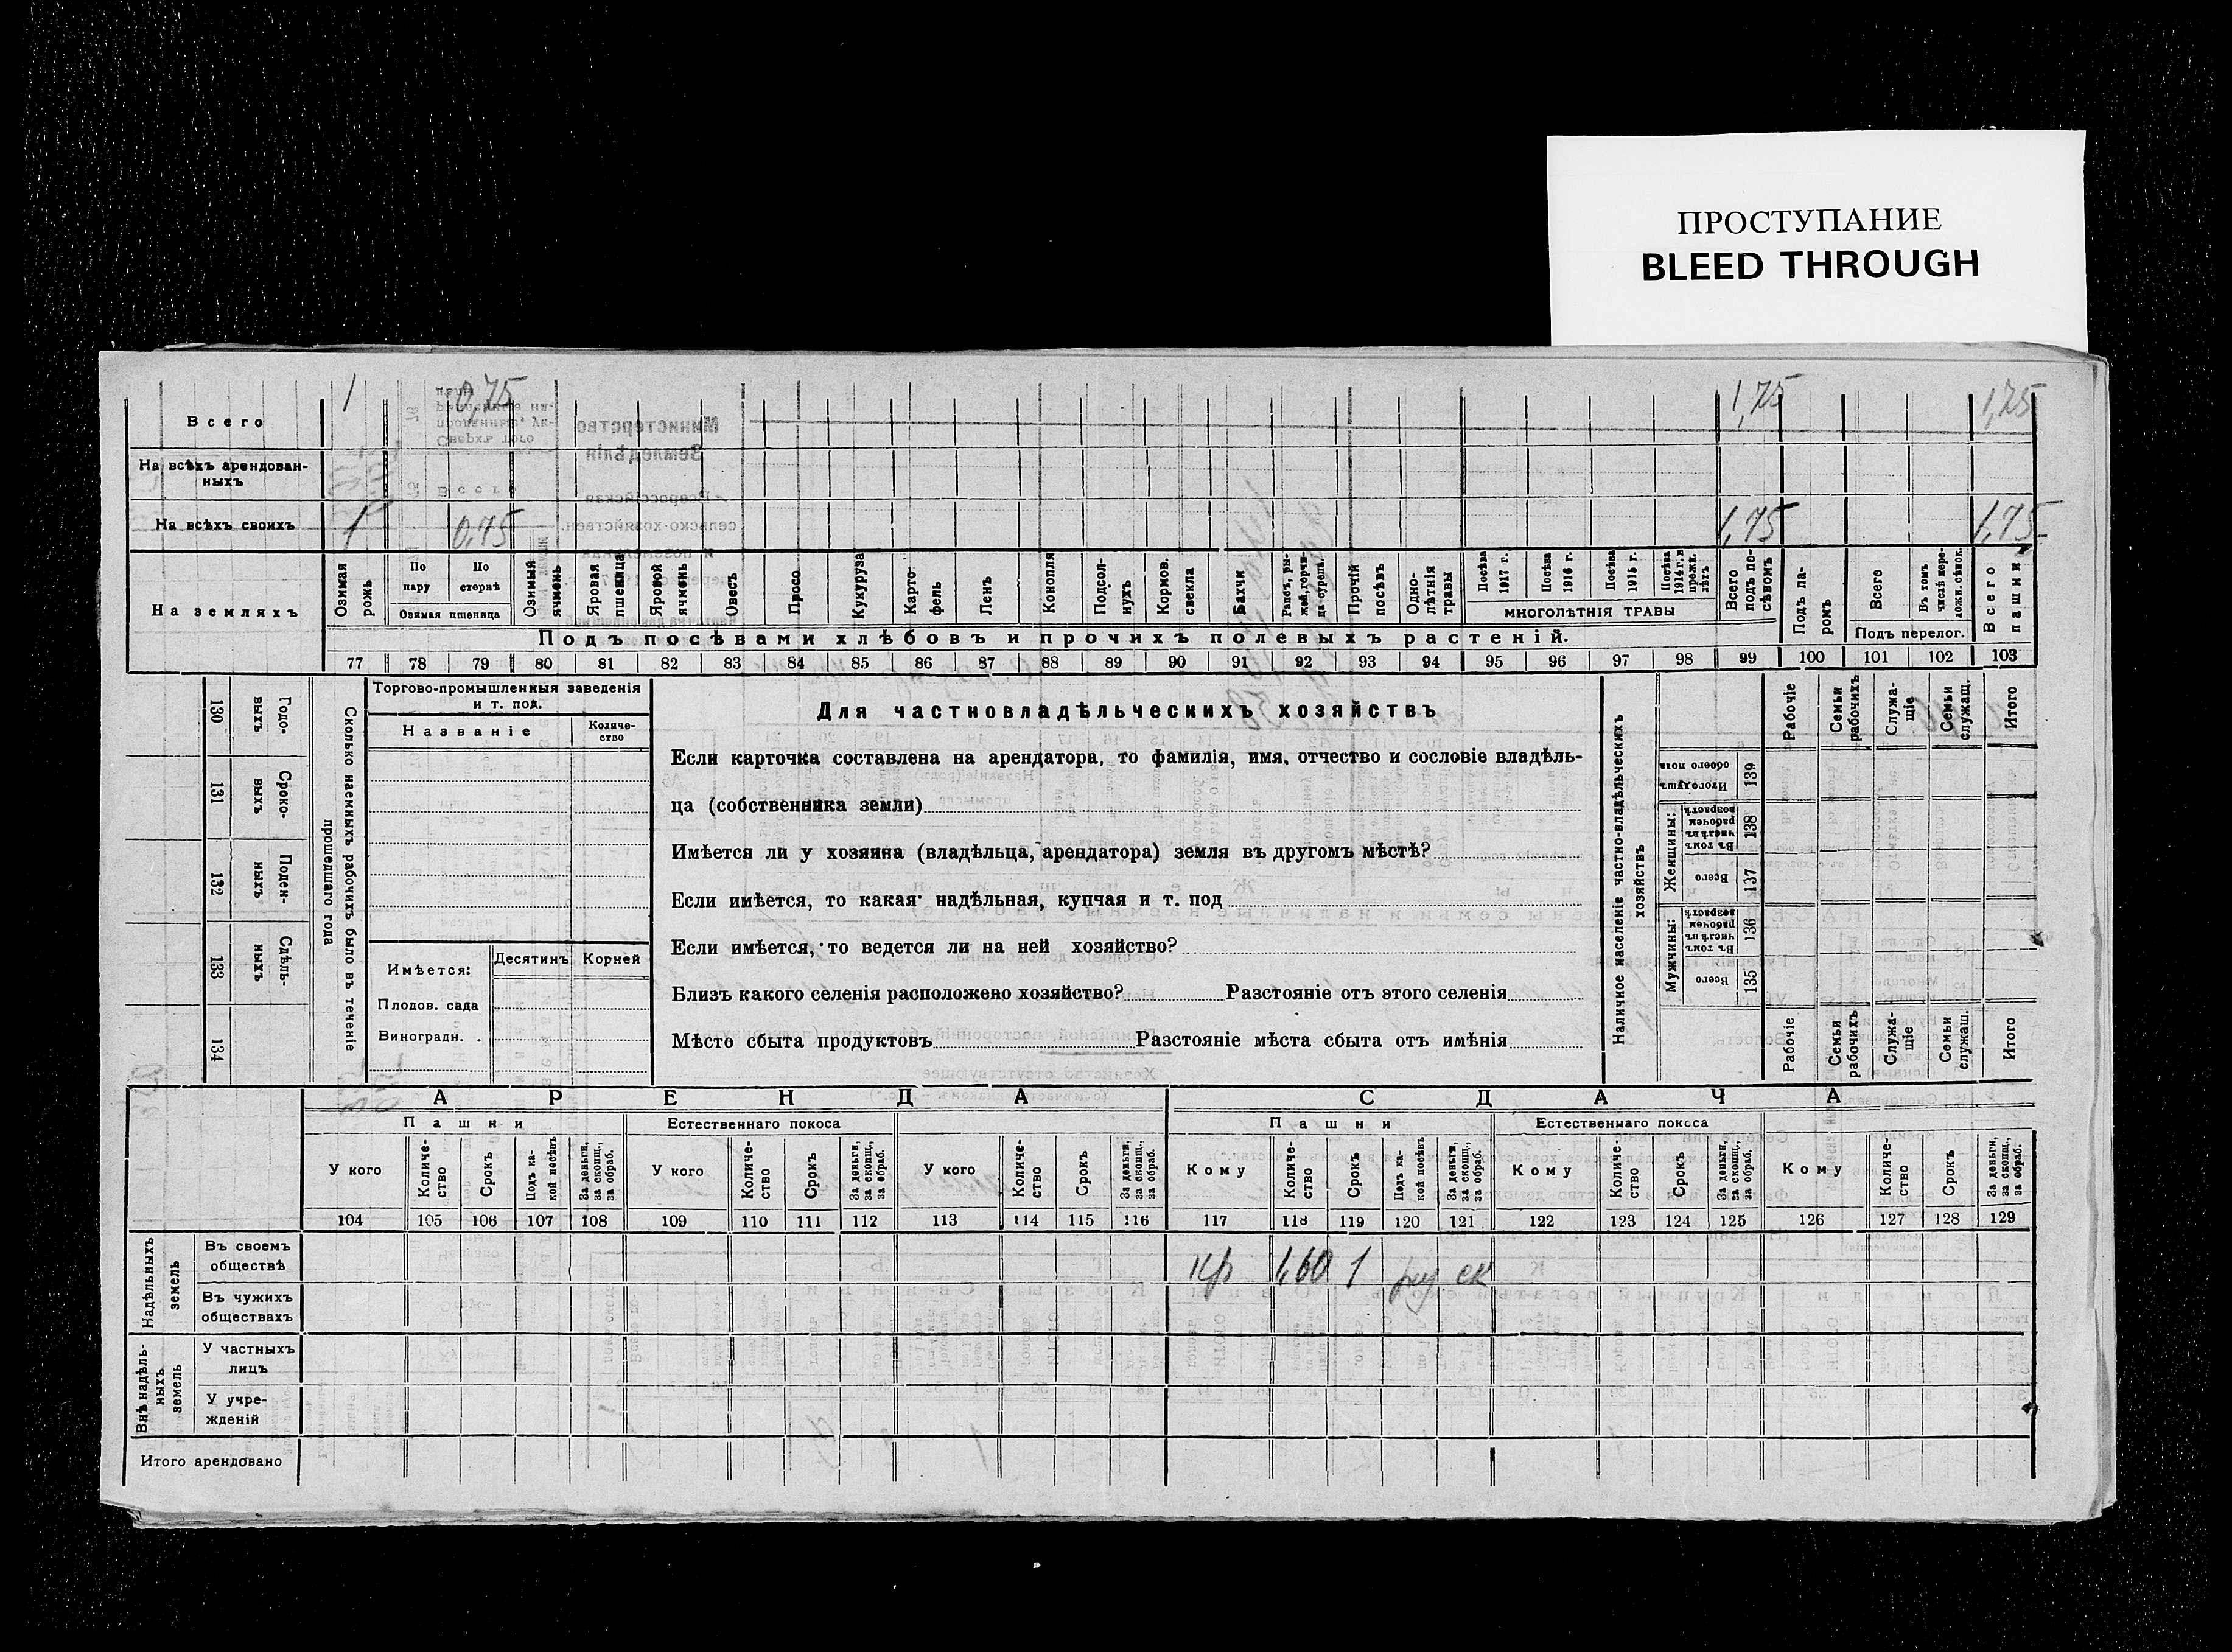 ПРОСТУПАНИЕ
BLEED THROUGH
Всего 1 0,75 1,75 1,75
На всѣхъ арендован-
ныхъ
На всѣхъ своихъ 1 0,75 1,75 1,75
На земляхъ
Озимая рожь
По пару
По стернѣ
Озимая пшеница
Озимый ячмень
Яровая пшеница
Яровой ячмень
Овесъ
Просо
Кукуруза
Карто-
фель
Ленъ
Конопля
Подсол-
нухъ
Кормов.
свекла
Бахчи
Рапсъ, ры-
жей, горчи-
ца сурепа.
Прочій посѣвъ
Одно-
лѣтнія
травы
Посѣва 1917 г.
Посѣва 1916 г.
Посѣва 1915 г.
Посѣва 1914 г. и прежн. лѣтъ
МНОГОЛѢТНІЯ ТРАВЫ
Всего подъ по-
сѣвомъ
Подъ па-
ромъ
Всего
Въ томъ числѣ пере-
ложн. сѣнок.
Подъ перелог.
Всего пашни
Подъ посѣвами хлѣбовъ и прочихъ полевыхъ растеній.
77 78 79 80 81 82 83 84 85 86 87 88 89 90 91 92 93 94 95 96 97 98 99 100 101 102 103
130 Годо-
выхъ
131 Сроко-
выхъ
132 Поден-
ныхъ
133 Сдѣль-
ныхъ
134
Сколько наемныхъ рабочихъ было въ теченіе
прошедшаго года
Торгово-промышленныя заведенія
и т. под.
Названіе
Количе-
ство
Имѣется:
Десятинъ
Корней
Плодов. сада
Виноградн.
Для частновладѣльческихъ хозяйствъ
Если карточка составлена на арендатора, то фамилія, имя, отчество и сословіе владѣль-
ца (собственника земли)
Имѣется ли у хозяина (владѣльца, арендатора) земля въ другомъ мѣстѣ?
Если имѣется, то какая надѣльная, купчая и т. под
Если имѣется, то ведется ли на ней хозяйство?
Близъ какого селенія расположено хозяйство? Разстояніе отъ этого селенія
Мѣсто сбыта продуктовъ Разстояніе мѣста сбыта отъ имѣнія
Наличное населеніе частно-владѣльческихъ
хозяйствъ
Рабочіе
Семьи рабочихъ
Служа-
щіе
Семьи служащ.
Итого
Итого душъ обоего пола 139
Женщины:
Въ томъ числѣ въ рабочемъ возрастѣ 138
Всего 137
Мужчины:
Въ томъ числѣ въ рабочемъ возрастѣ 136
Всего 135
Рабочіе
Семьи рабочихъ
Служа-
щіе
Семьи служащ.
Итого
АРЕНДА
СДАЧА
Пашни
Естественнаго покоса
Пашни
Естественнаго покоса
У кого
Количе-
ство
Срокъ
Подъ ка-
кой посѣвъ
За деньги,
за скопщ.,
за обраб.
У кого
Количе-
ство
Срокъ
За деньги,
за скопщ.,
за обраб.
У кого
Количе-
ство
Срокъ
За деньги,
за скопщ.,
за обраб.
Кому
Количе-
ство
Срокъ
Подъ ка-
кой посѣвъ
За деньги,
за скопщ.,
за обраб.
Кому
Количе-
ство
Срокъ
За деньги,
за скопщ.,
за обраб.
Кому
Количе-
ство
Срокъ
За деньги,
за скопщ.,
за обраб.
104 105 106 107 108 109 110 111 112 113 114 115 116 117 118 119 120 121 122 123 124 125 126 127 128 129
Надѣльныхъ
земель
Въ своемъ
обществѣ
кр 1,60 1 ск
Въ чужихъ
обществахъ
Внѣ надѣль-
ныхъ
земель
У частныхъ
лицъ
У учре-
жденій
Итого арендовано